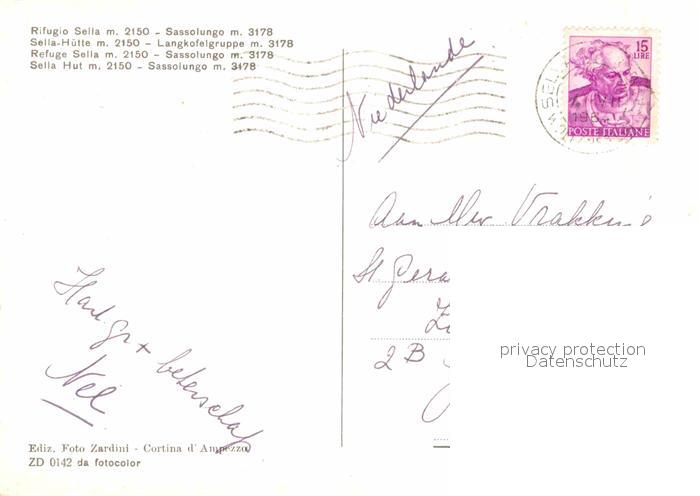 Rifugio Sella m. 2150 - Sassolungo m. 3178
Sella-Hütte m. 2150 - Langkofelgruppe m. 3178
Refuge Sella m. 2150 - Sassolungo m. 3178
Sella Hut m. 2150 - Sassolungo m. 3178
15
LIRE
POSTE ITALIANE
Niederlande
Aan Mev
St. Gera
2B
privacy protection
Datenschutz
Hart. gr + beterschap
Nel
Ediz. Foto Zardini - Cortina d'Ampezzo
ZD 0142 da fotocolor